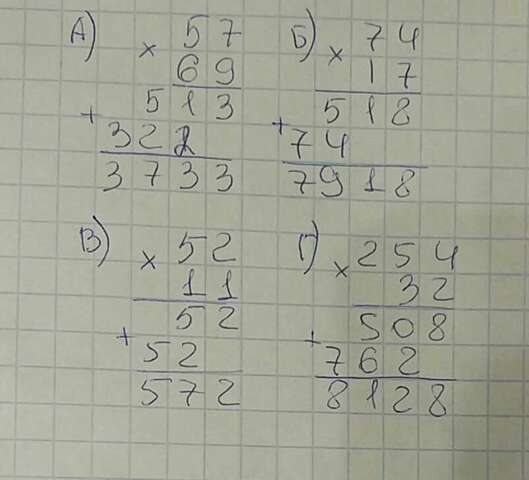 А)
× 57
69
513
+ 322
3733
Б)
× 74
17
518
+ 74
7918
В)
× 52
11
52
+ 52
572
Г)
× 254
32
508
+ 762
8128